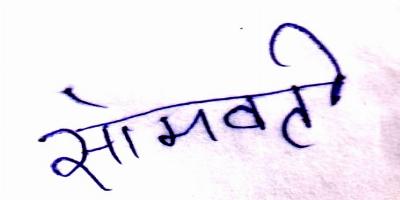 सोमवती